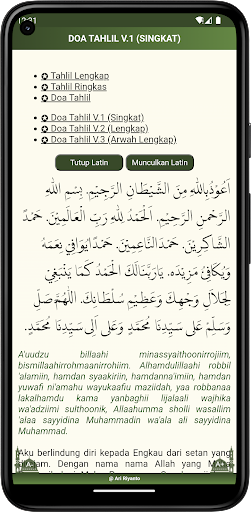 12:31
DOA TAHLIL V.1 (SINGKAT)
Tahlil Lengkap
Tahlil Ringkas
Doa Tahlil
Doa Tahlil V.1 (Singkat)
Doa Tahlil V.2 (Lengkap)
Doa Tahlil V.3 (Arwah Lengkap)
Tutup Latin
Munculkan Latin
اَعُوْذُبِاللهِ مِنَ الشَّيْطَانِ الرَّجِيْمِ. بِسْمِ اللهِ
الرَّحْمنِ الرَّحِيْمِ. اَلْحَمْدُ لِلهِ رَبِّ الْعَالَمِيْنَ. حَمْدَ
الشَّاكِرِيْنَ. حَمْدَ النَّاعِمِيْنَ. حَمْدًايُوَافِيْ نِعَمَهُ
وَيُكَافِئُ مَزِيْدَه. يَارَبَّنَالَكَ الْحَمْدُ كَمَا يَنْبَغِيْ
لِجَلَالِ وَجْهِكَ وَعَظِيْمِ سُلْطَانِكَ. اَللّهُمَّ صَلِّ
وَسَلِّمْ عَلَى سَيِّدِنَا مُحَمَّدٍ وَعَلَى اَلِ سَيِّدِنَا مُحَمَّدٍ.
A'uudzu billaahi minassyaithoonirrojiim,
bismillaahirrohmaanirrohiim. Alhamdulillaahi robbil
'alamiin, hamdan syaakiriin, hamdanna'imiin, hamdan
yuwafi ni'amahu wayukaafiu maziidah, yaa robbanaa
lakalhamdu kama yanbaghii lijalaali wajhika
wa'adziimi sulthoonik, Allaahumma sholli wasallim
'alaa sayyidina Muhammadin wa'alaa ali sayyidina
Muhammad.
Aku berlindung diri kepada Engkau dari setan yang
Dengan nama nama Allah yang M
@ Ari Riyanto